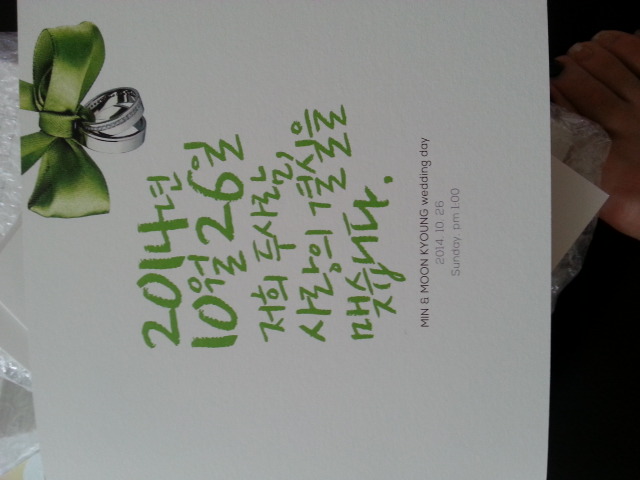 2014년
10월 26일
저희 두사람,
사랑의 결실을
맺습니다.
MIN & MOON KYOUNG wedding day
2014. 10. 26
Sunday, pm 1:00